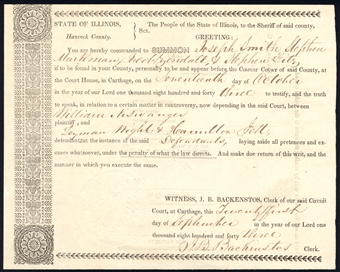 STATE OF ILLINOIS,
Hancock County.
Sct.
The People of the State of Illinois, to the Sheriff of said county,
GREETING:
You are hereby commanded to SUMMON Joseph Smith, Stephen
Markham,
& Stephen
if to be found in your County, personally to be and appear before the Circuit Court of said County, at
the Court House, in Carthage, on the Seventeenth day of October
in the year of our Lord one thousand eight hundred and forty three to testify, and the truth
to speak, in relation to a certain matter in controversy, now depending in the said Court, between
William
plaintiff, and Lyman Wight & Hamilton
defendant at the instance of the said Defendants, laying aside all pretences and ex-
cuses whatsoever, under the penalty of what the law directs. And make due return of this writ, and the
manner in which you execute the same.
WITNESS, J. B. BACKENSTOS, Clerk of our said Circuit
Court, at Carthage, this Twenty first
day of September in the year of our Lord one
thousand eight hundred and forty three
J. B. Backenstos Clerk.